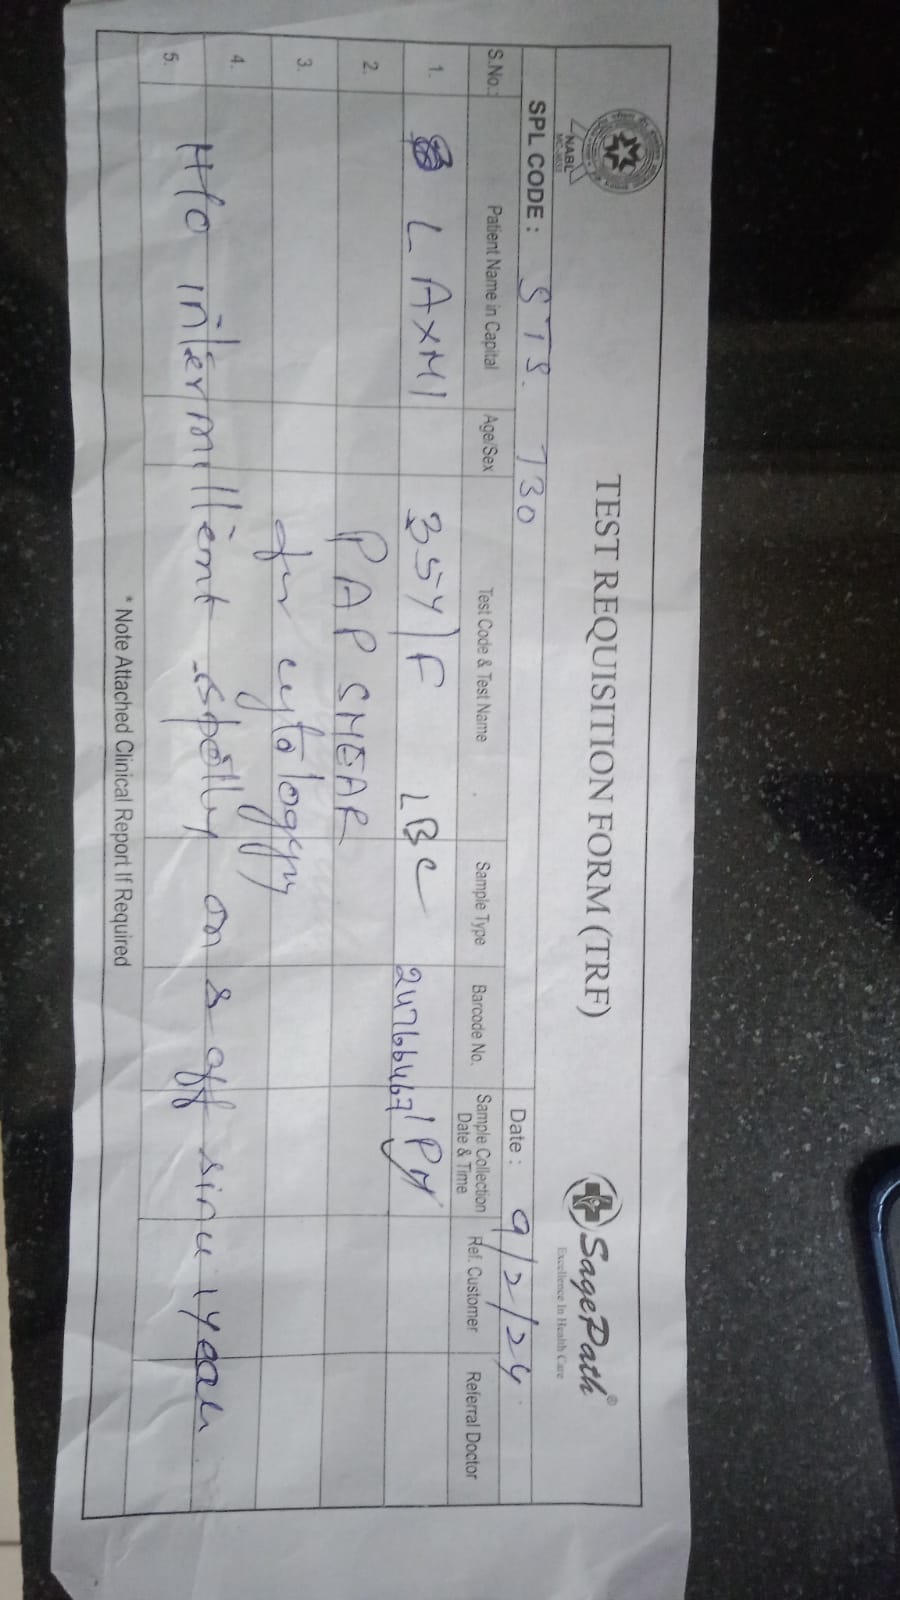 TEST REQUISITION FORM (TRF)
NABL
SagePath®
Excellence In Health Care
SPL CODE : STS. 730
Date : 9/2/24
S.No.: Patient Name in Capital Age/Sex Test Code & Test Name Sample Type Barcode No. Sample Collection Date & Time Ref. Customer Referral Doctor
1. LAXMI 35Y/F LBC 24766467 1PM
2. PAP SMEAR
3. for cytology
4.
5. H/o intermittent spotty on & off since 1 year
* Note Attached Clinical Report If Required